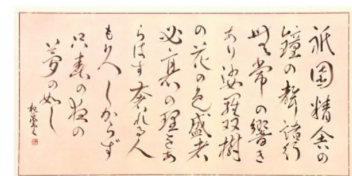 祇園精舎の
鐘の聲諸行
無常の響き
あり娑羅双樹
の花の色盛者
必衰の理をあ
らはす奢れる人
も久しからず
只春の夜の
夢の如し